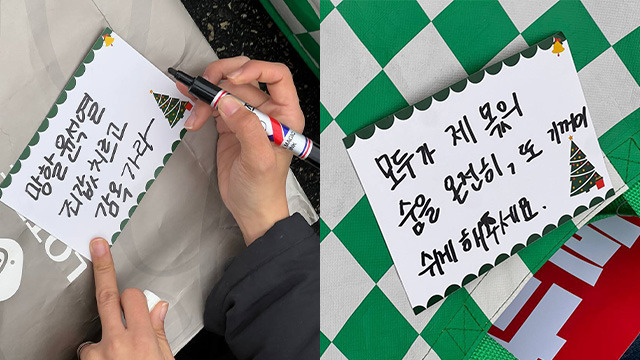 망할 윤석열
죗값 치르고
감옥 가라-
모두가 제 몫의
숨을 온전히, 또 기꺼이
쉬게 해주세요.